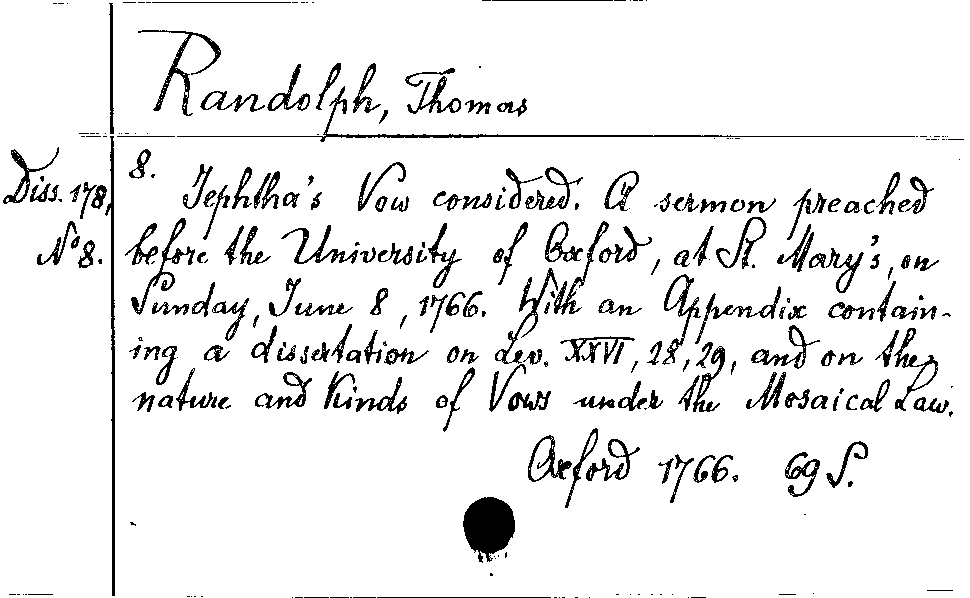 Randolph, Thomas
Diss. 178,
No 8.
8.
Jephtha's Vow considered. A sermon preached
before the University of Oxford, at St. Mary's, on
Sunday, June 8, 1766. With an Appendix contain-
ing a dissertation on Lev. XXVI, 28, 29, and on the
nature and Kinds of Vows under the Mosaical Law.
Oxford 1766. 69 S.